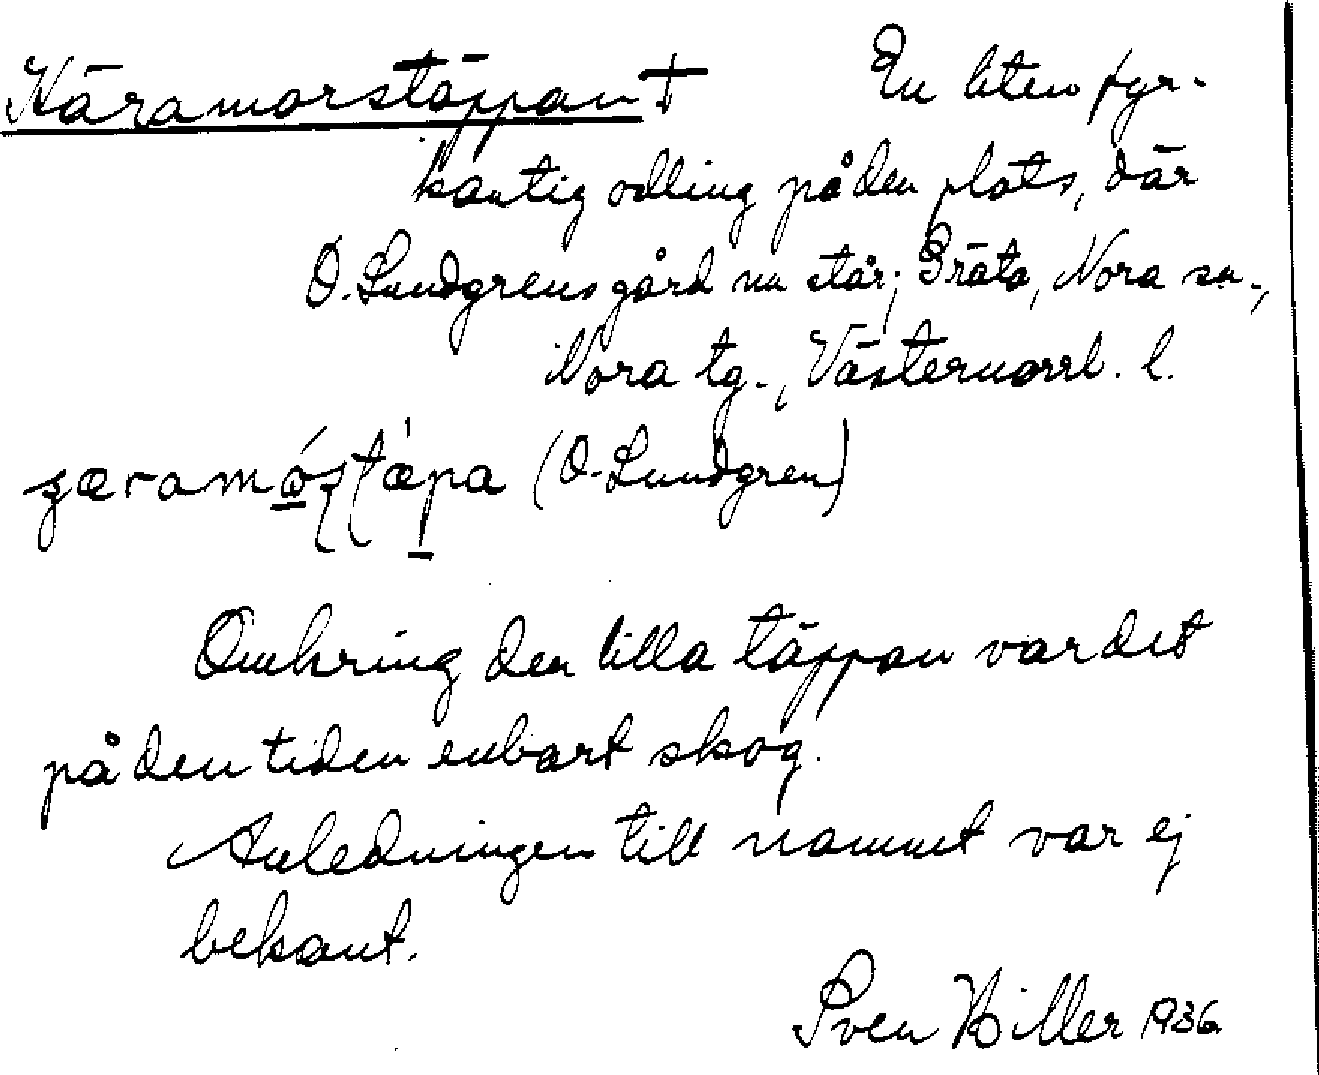 Käramorstäppan † En liten fyr-
kantig odling på den plats, där
O. Lundgrens gård nu står; Gräta, Nora sn.,
Nora tg., Västernorrl. l.
(O. Lundgren)
Omkring den lilla täppan var det
på den tiden enbart skog.
Anledningen till namnet var ej
bekant.
Sven Hiller 1936